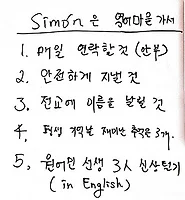 Simon은 영어마을 가서
1. 매일 연락할 것 (안부)
2. 안전하게 지낼 것
3. 전교에 이름을 날릴 것
4. 평생 기억날 재미난 추억은 3개.
5. 원어민 선생 3人 신상털기
(in English)